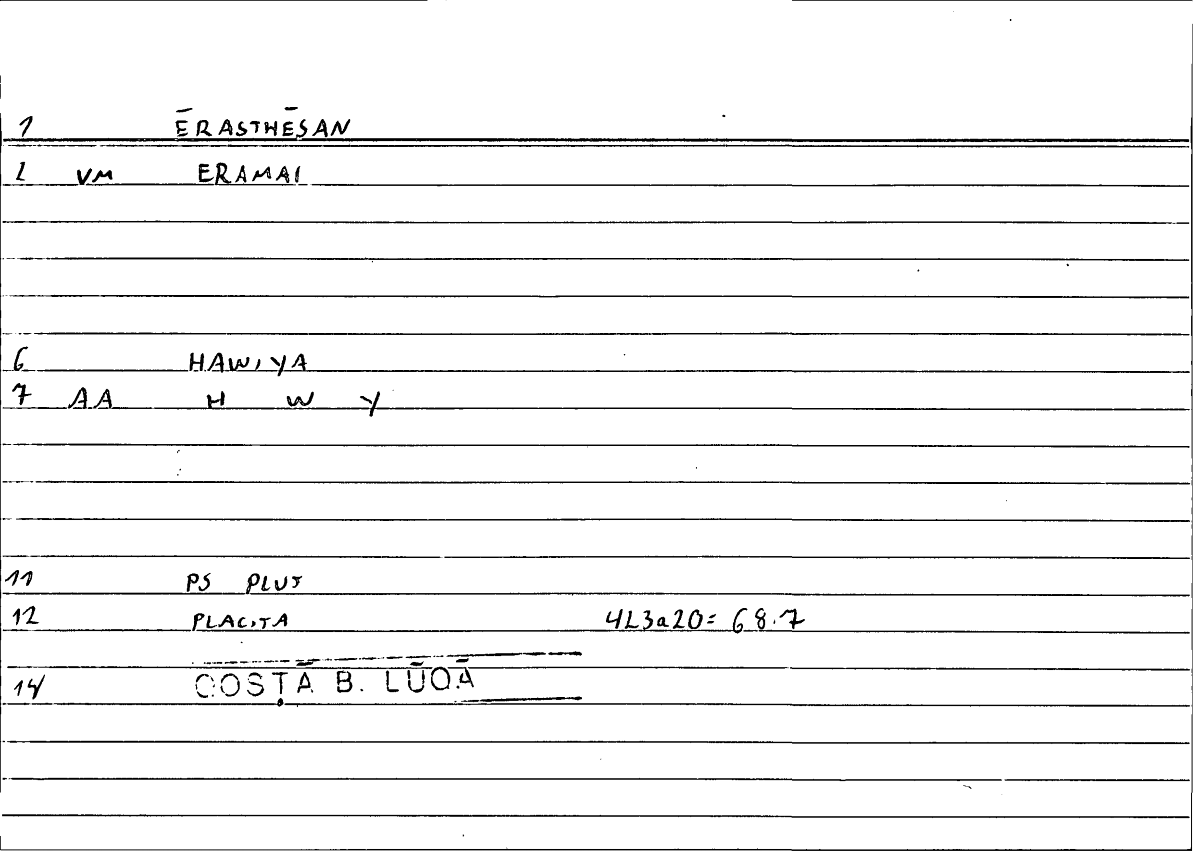 1 ĒRASTHĒSAN
2 VM ERAMAI
6 HAWIYA
7 AA H W Y
11 PS PLUT
12 PLACITA 423a20= 68.7
14 QOSṬĀ B. LŪQĀ